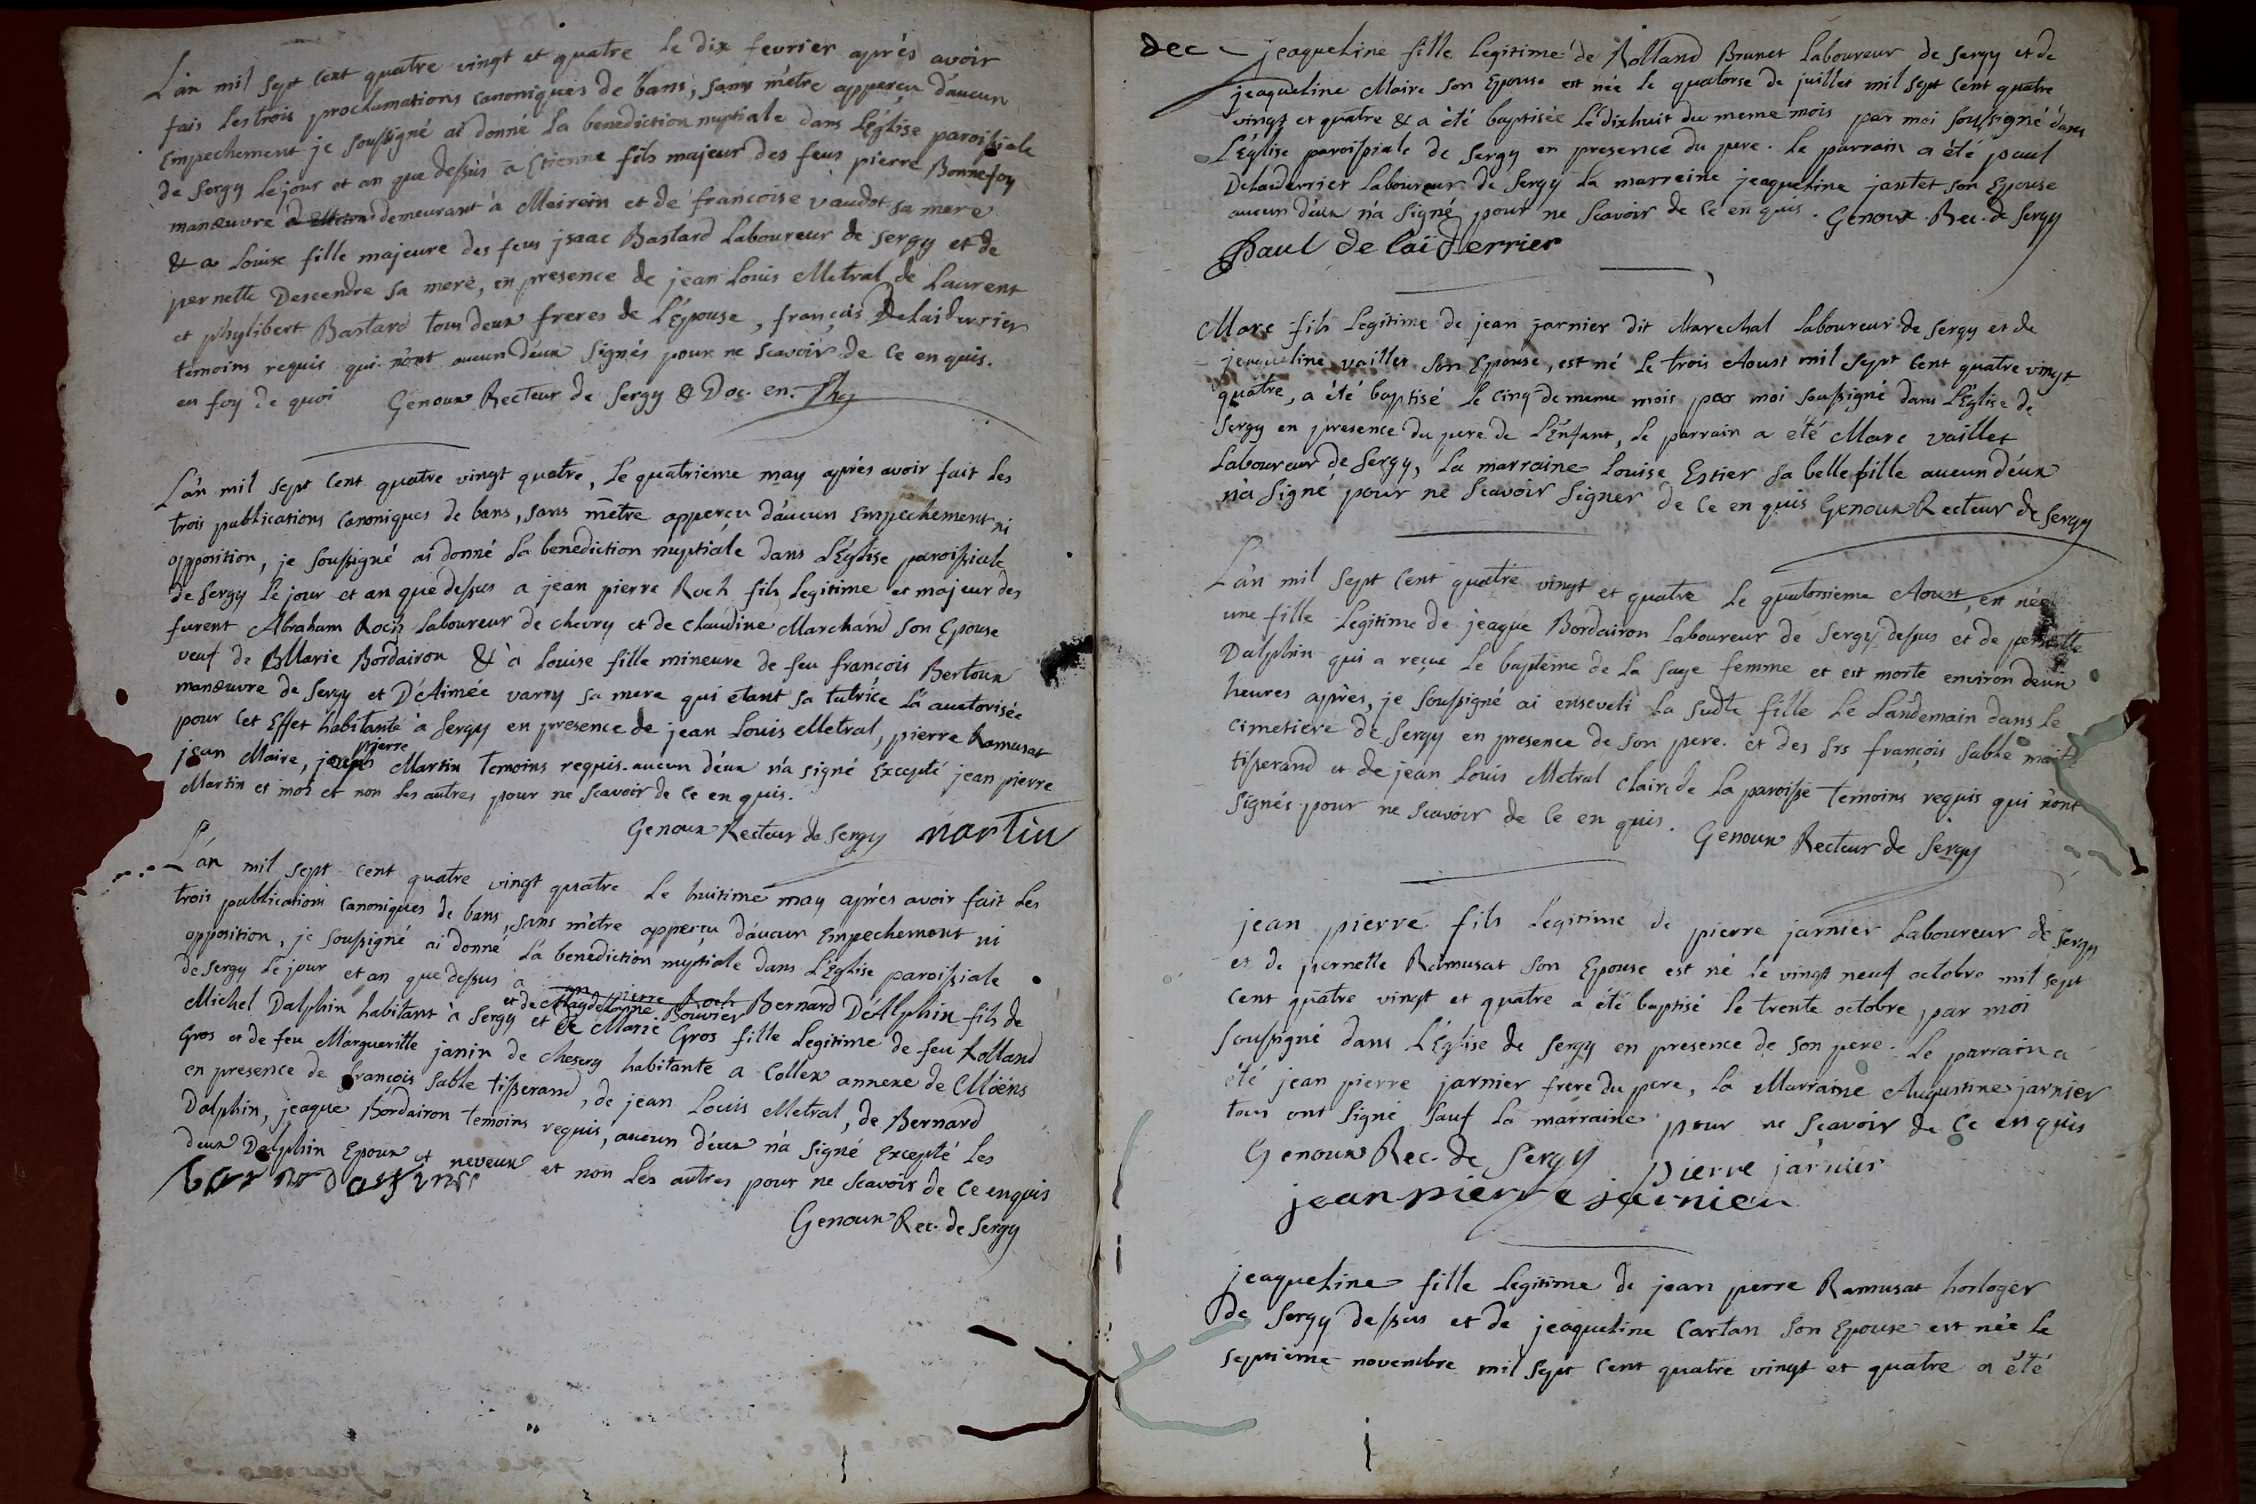 L'an mil sept cent quatre vingt et quatre le dix fevrier après avoir
fais les trois proclamations canoniques de bans, sans m'être apperçu d'aucun
Empechement je soussigné ai donné la benediction nuptiale dans L'Église paroissiale
de Sergy le jour et an que dessus a Etienne fils majeur des feus pierre Bonnefoy
manœuvre demeurant à Meirein et de françoise vaudot sa mere
& a Louise fille majeure des feus jsaac Bastard Laboureur de Sergy et de
pernette Descendre sa mere, en presence de jean Louis Metral de Laurent
et phylibert Bastard tous deux freres de L'Epouse, françois Delaiderrier
temoins requis qui n'ont aucun d'eux signés pour ne scavoir de ce enquis.
en foy de quoi Genoux Recteur de Sergy & Doc. en.
L'an mil sept cent quatre vingt quatre, le quatrieme may après avoir fait les
trois publications canoniques de bans, sans m'être apperçu d'aucun Empechement ni
opposition, je soussigné ai donné la benediction nuptiale dans L'Église paroissiale
de Sergy le jour et an que dessus a jean pierre Roch fils legitime et majeur des
furent Abraham Roch Laboureur de chevry et de claudine Marchand son Epouse
veuf de Marie Bordairon & à Louise fille mineure de feu françois Bertoux
manœuvre de Sergy et D'Aimée varry sa mere qui etant sa tutrice L'a auctorisée
pour cet Effet habitante à Sergy en presence de jean Louis Metral, pierre Ramusat
jean Maire, jean pierre Martin temoins requis. aucun d'eux n'a signé Excepté jean pierre
Martin et moi et non les autres pour ne scavoir de ce en quis.
Genoux Recteur de Sergy martin
L'an mil sept cent quatre vingt quatre le huitime may après avoir fait les
trois publications canoniques de bans, sans m'être apperçu d'aucun Empechement ni
opposition, je soussigné ai donné la benediction nuptiale dans L'Eglise paroissiale
de Sergy le jour et an que dessus à pierre Roch Bernard D'Alphin fils de
Michel Dalphin habitant à Sergy et de Magdelonne Bouvier et de Marie Gros fille legitime de feu Rolland
Gros et de feu Margueritte janin de chesery habitante a Collex annexe de Moëns
en presence de françois Sable tisserand, de jean Louis Metral, de Bernard
Dalphin, jeaque Bordairon temoins requis, aucun d'eux n'a signé Excepté les
deux Dalphin Epoux et neveux et non les autres pour ne scavoir de ce enquis
Genoux Rec. de Sergy
dec jeaqueline fille legitime de Rolland Brunet Laboureur de Sergy et de
jeaqueline Maire son Epouse est née le quatorse de juillet mil sept cent quatre
vingt et quatre & a été baptisée le dixhuit du meme mois par moi soussigné dans
L'Église paroissiale de Sergy en presence du pere. Le parrain a été paul
Delaiderrier Laboureur de Sergy la marreine jeaqueline jantet son Epouse
aucun d'eux n'a signé pour ne scavoir de ce en quis. Genoux Rec. de Sergy
Paul de laiderrier
Marc fils legitime de jean jarnier dit Marechal Laboureur de Sergy et de
jeaqueline vaillet son Epouse, est né le trois Aoust mil sept cent quatre vingt
quatre, a été baptisé le cinq de meme mois par moi soussigné dans L'Église de
Sergy en presence du pere de L'Enfant, le parrain a été Marc vaillet
Laboureur de Sergy, la marraine Louise Estier sa belle fille aucun d'eux
n'a signé pour ne scavoir signer de ce en quis Genoux Recteur de Sergy
L'an mil sept cent quatre vingt et quatre le quatorsieme Aoust, est née
une fille legitime de jeaque Bordairon Laboureur de Sergy dessus et de pernette
Dalphin qui a reçue le baptême de la sage femme et est morte environ deux
heures après, je soussigné ai enseveli la sudte fille le Landemain dans le
cimetiere de Sergy en presence de son pere. et des Srs françois Sable
tisserand et de jean Louis Metral claire de la paroisse temoins requis qui n'ont
signés pour ne scavoir de ce en quis. Genoux Recteur de Sergy
jean pierre fils legitime de pierre jarnier Laboureur de Sergy
et de pernette Ramusat son Epouse est né le vingt neuf octobre mil sept
cent quatre vingt et quatre a été baptisé le trente octobre par moi
soussigné dans L'Église de Sergy en presence de son pere. Le parrain a
été jean pierre jarnier frere du pere, la Marraine Augustine jarnier
tous ont signé sauf la marraine pour ne scavoir de ce enquis
Genoux Rec. de Sergy pierre jarnier
jean pierre jarnier
jeaqueline fille legitime de jean pierre Ramusat horloger
de Sergy dessus et de jeaqueline Cartan son Epouse est née le
septieme novembre mil sept cent quatre vingt et quatre a été